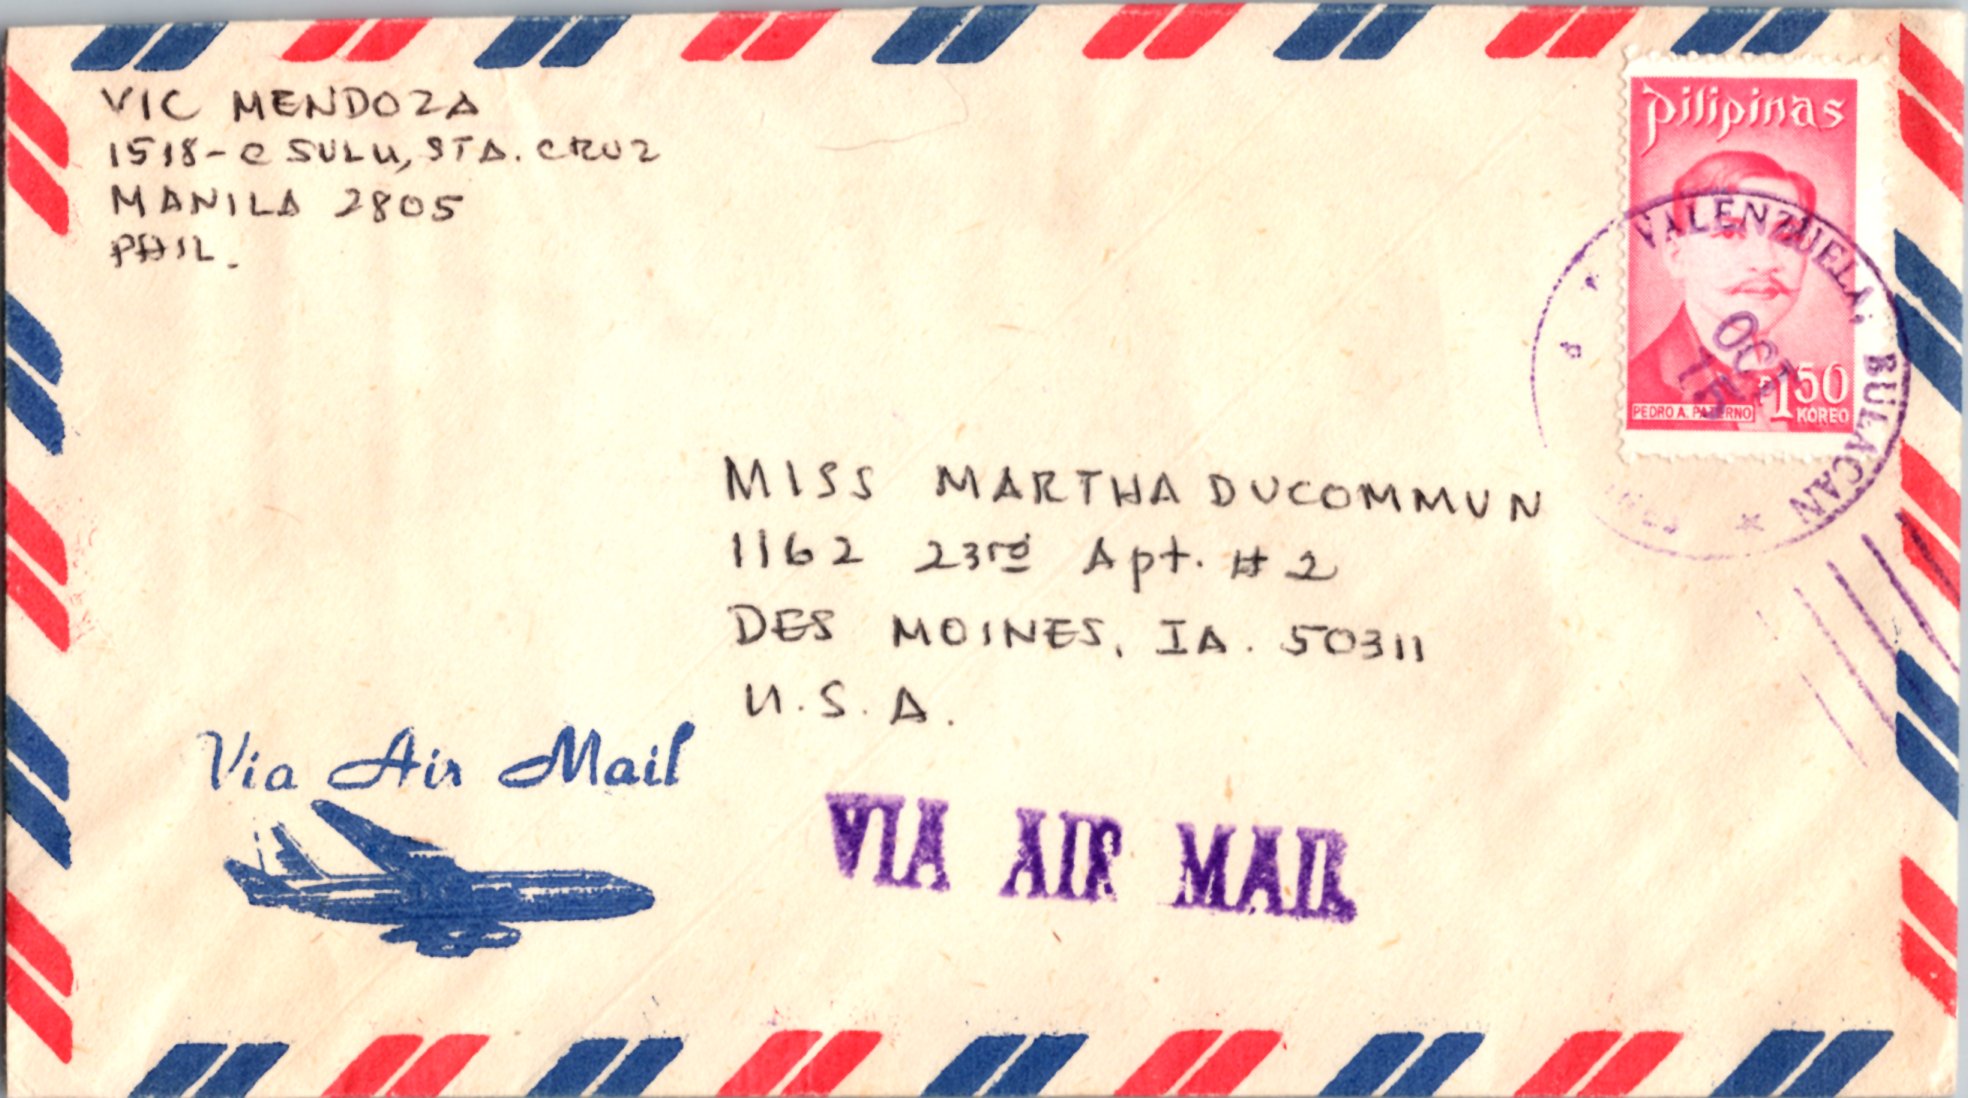 VIC MENDOZA
1518-C SULU, STA. CRUZ
MANILA 2805
PHIL.
pilipinas
PEDRO A. PATERNO
P150
KOREO
VALENZUELA, BULACAN
OCT
75
MISS MARTHA DUCOMMUN
1162 23rd Apt. #2
DES MOINES, IA. 50311
U.S.A.
Via Air Mail
VIA AIR MAIL